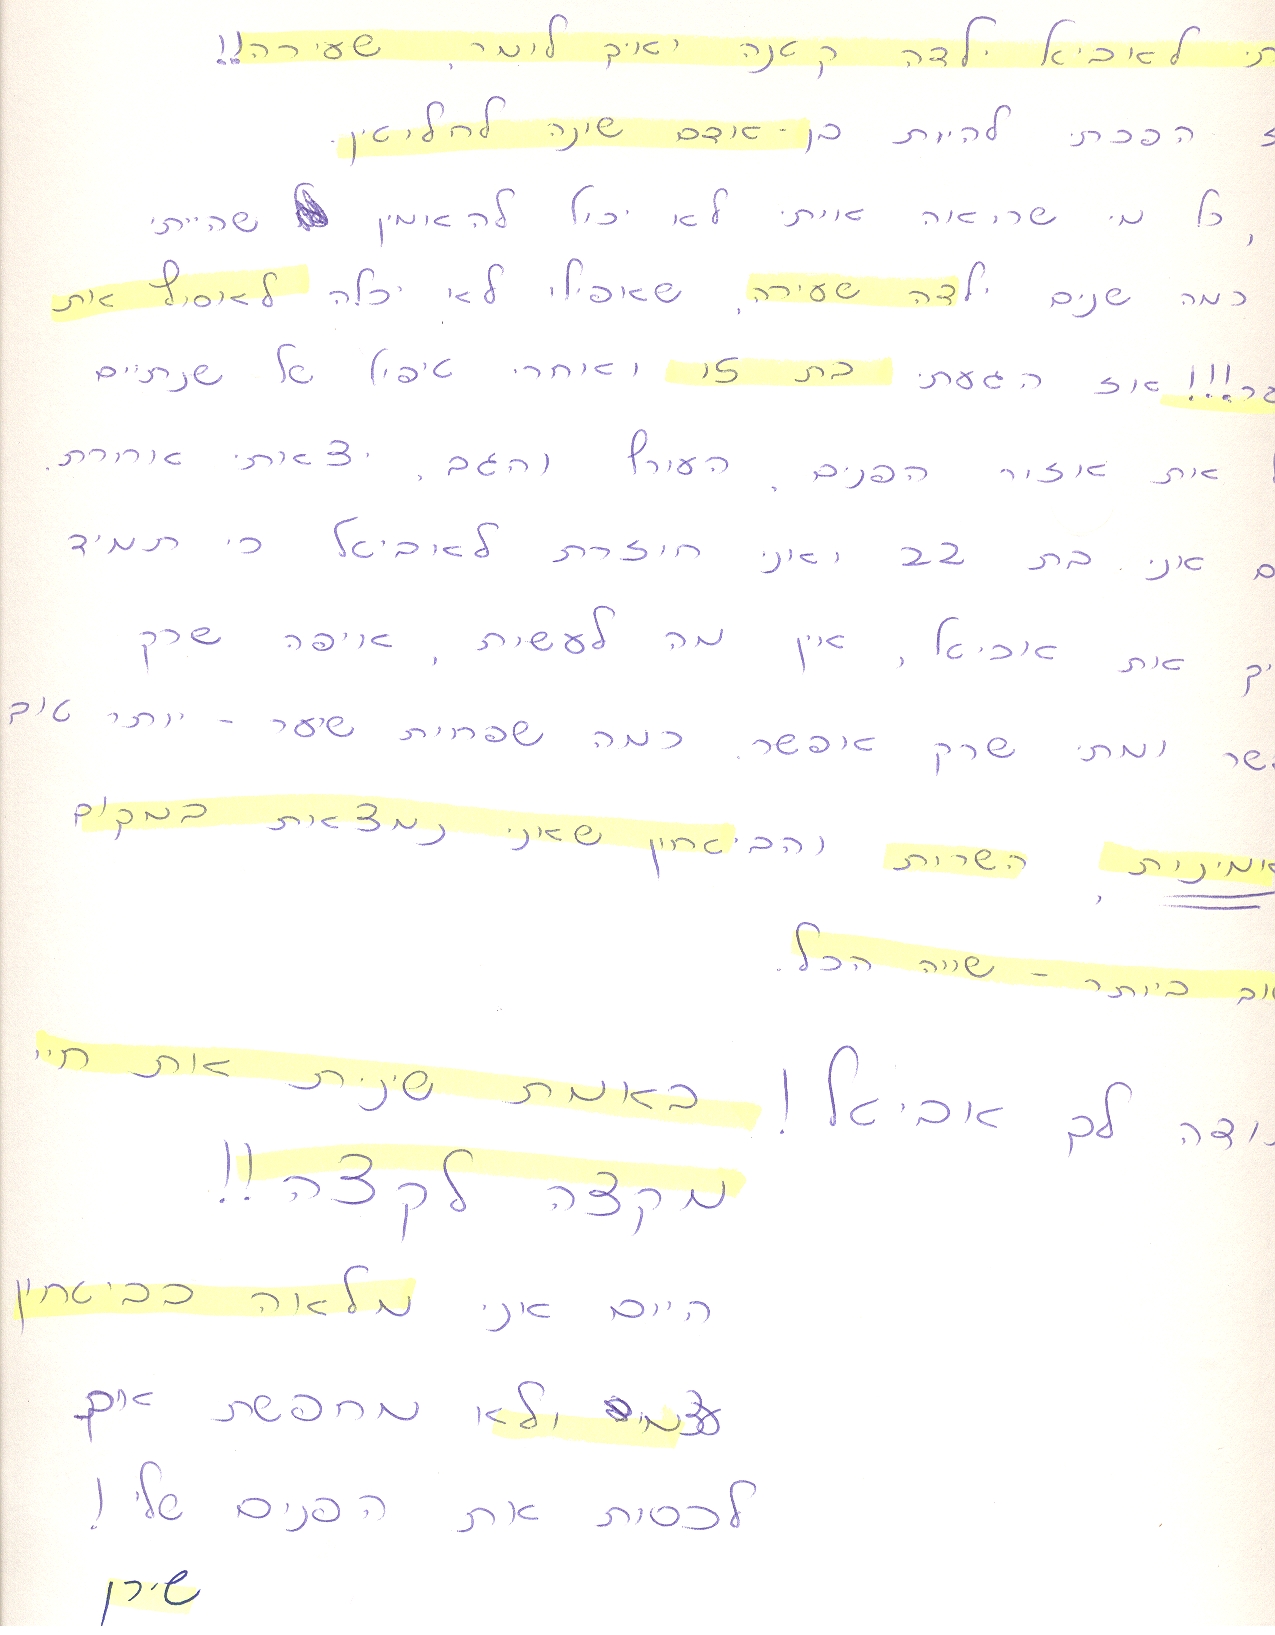 תי לאביאל ילדה קטנה ואיך לומר, שעירה!!
הפכתי להיות בן-אדם שונה לחלוטין.
, כל מי שרואה אותי לא יכול להאמין שהייתי
כמה שנים ילדה שעירה, שאפילו לא יכלה לאסוף את
ער!!! אז הגעתי בת 15 ואחרי טיפול של שנתיים
את אזור הפנים, העורף והגב, יצאתי אחרת.
ם אני בת 22 ואני חוזרת לאביאל כי תמיד
יך את אביאל, אין מה לעשות, איפה שרק
שר ומתי שרק אפשר. כמה שפחות שיער - יותר טוב
אמינות, השרות והביטחון שאני נמצאת במקום
וב ביותר - שווה הכל.
תודה לך אביאל! באמת שינית את חיי
מקצה לקצה!!
היום אני מלאה בביטחון
עצמי ולא מחפשת איך
לכסות את הפנים שלי!
שירן